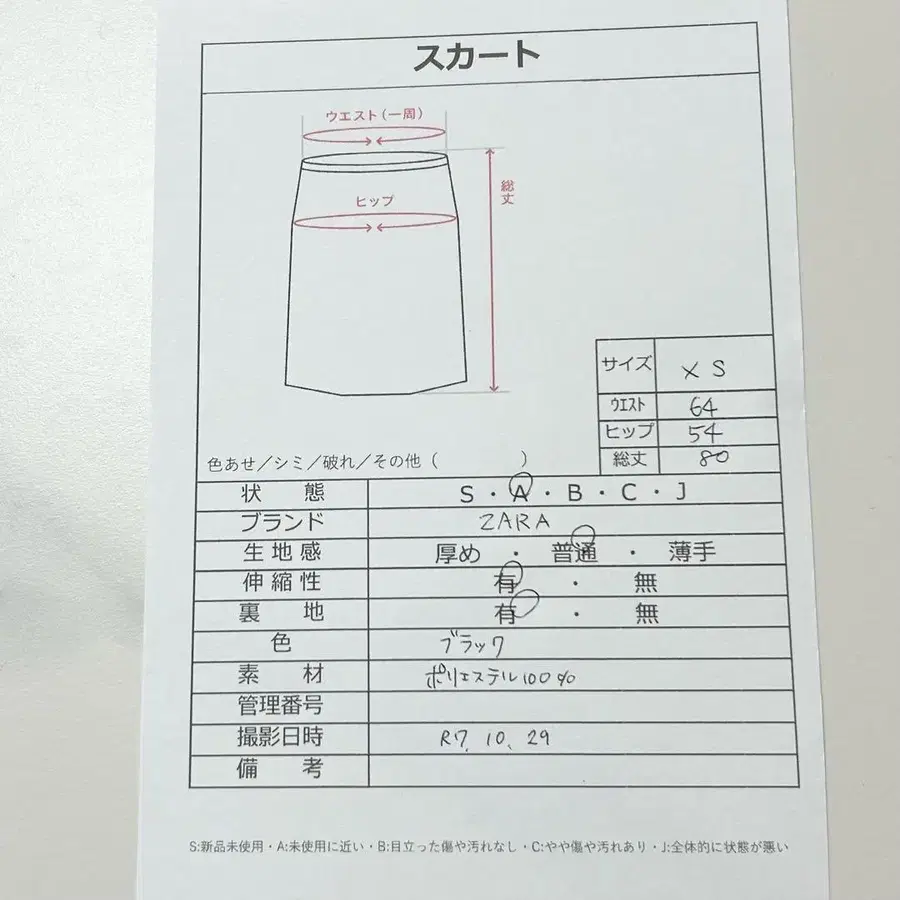 スカート
ウエスト(一周)
総丈
ヒップ
サイズ XS
ウエスト 64
ヒップ 54
総丈 80
色あせ/シミ/破れ/その他 (          )
状 態 S・A・B・C・J
ブランド ZARA
生地感 厚め ・ 普通 ・ 薄手
伸縮性 有 ・ 無
裏 地 有 ・ 無
色 ブラック
素 材 ポリエステル100%
管理番号
撮影日時 R7. 10. 29
備 考
S:新品未使用・A:未使用に近い・B:目立った傷や汚れなし・C:やや傷や汚れあり・J:全体的に状態が悪い